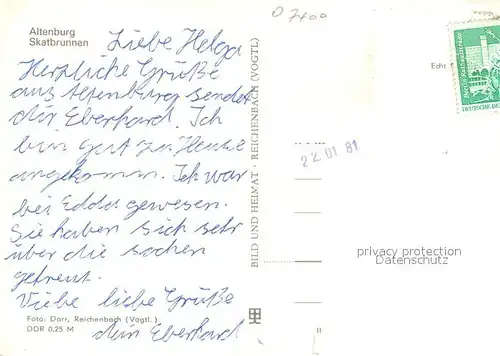 Altenburg
Skatbrunnen
Liebe Helga
Herzliche Grüße
aus Altenburg sendet
dir Eberhard. Ich
bin gut zu Hause
angekomm. Ich war
bei Edda gewesen.
Sie haben sich sehr
über die sachen
gefreut.
Viebe liebe Grüße
dein Eberhard
Foto: Darr, Reichenbach (Vogtl.)
DDR 0,25 M
BILD UND HEIMAT · REICHENBACH (VOGTL)
D 7400
Echt
22 01 81
privacy protection
Datenschutz